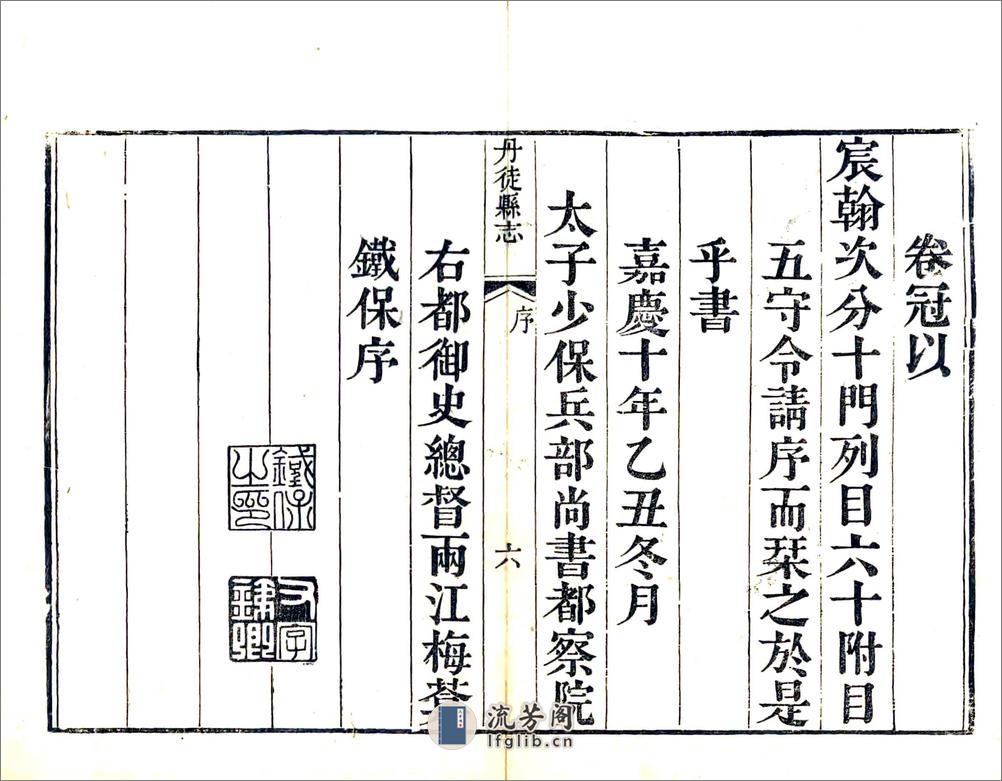 卷冠以
宸翰次分十門列目六十附目
五守令請序而栞之於是
乎書
嘉慶十年乙丑冬月
太子少保兵部尚書都察院
丹徒縣志
序
六
右都御史總督兩江梅菴
鐵保序
鐵保之印
又字鐵卿
流芳阁
lfglib.cn